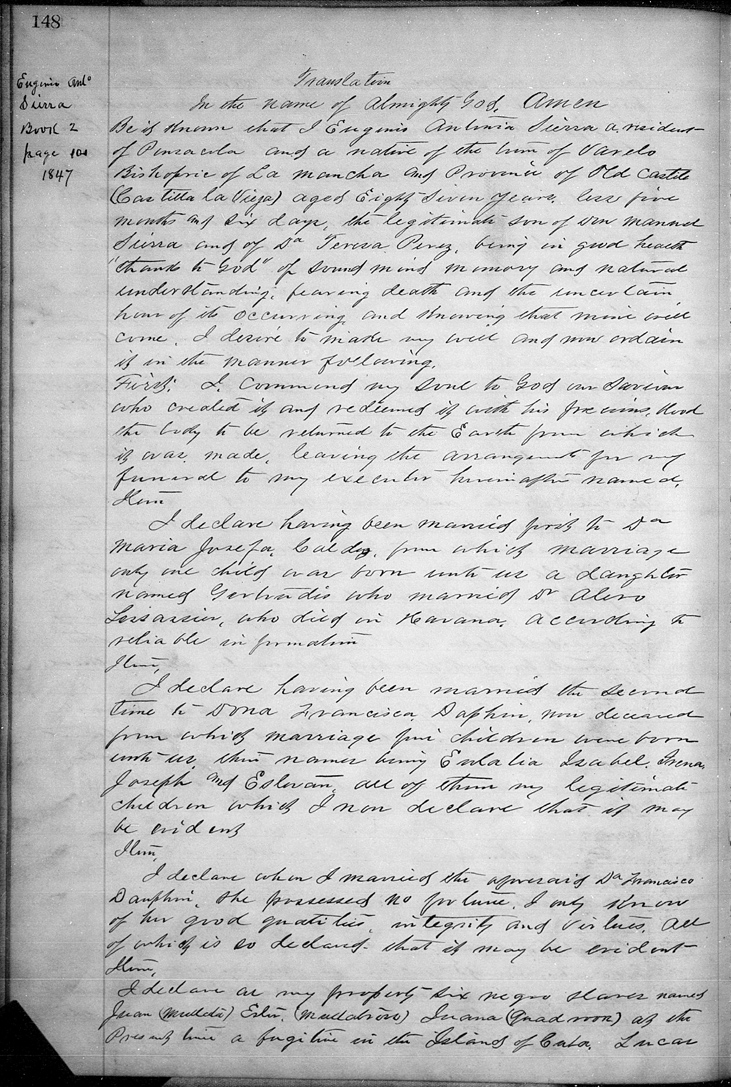 148
Eugenio Anto
Sierra
Book 2
page 101
1847
Translation
In the name of Almighty God, Amen
Be it Known that I Eugenio Antonio Sierra a resident
of Pensacola and a native of the town of Varelo
Bishopric of La mancha and Province of Old Castile
(Castilla la Vieja) aged Eighty Seven Years, less five
months and six days, the legitimate son of Don Manuel
Sierra and of Da Teresa Perez, being in good health
"thanks to God" of sound mind memory and natural
understanding, fearing death and the uncertain
hour of its occurring and knowing that mine will
come, I desire to made my will and now ordain
it in the manner following.
First; I commend my soul to God our Saviour
who created it and redeemed it with his precious blood
the body to be returned to the Earth from which
it was made, leaving the arrangement for my
funeral to my executor hereinafter named.
Item
I declare having been married first to Da
Maria Josefa, from which marriage
only one child was born unto us a daughter
named Gertrudis who married Dn
who died in Havana, according to
reliable information
Item,
I declare having been married the second
time to Dona Francisca Daphin, now deceased
from which marriage five children were born
unto us, their names being Eulalia Isabel, Irena,
Joseph and Eslevan, all of them my legitimate
children which I now declare that it may
be evident
Item,
I declare when I married the aforesaid Da Francisca
Dauphin, she possessed no fortune, I only know
of her good qualities, integrity and virtues, all
of which is so declared that it may be evident
Item,
I declare as my property six negro slaves named
Juan (mulato) Juana (Quadroon) at the
Present time a fugitive in the Island of Cuba, Lucas